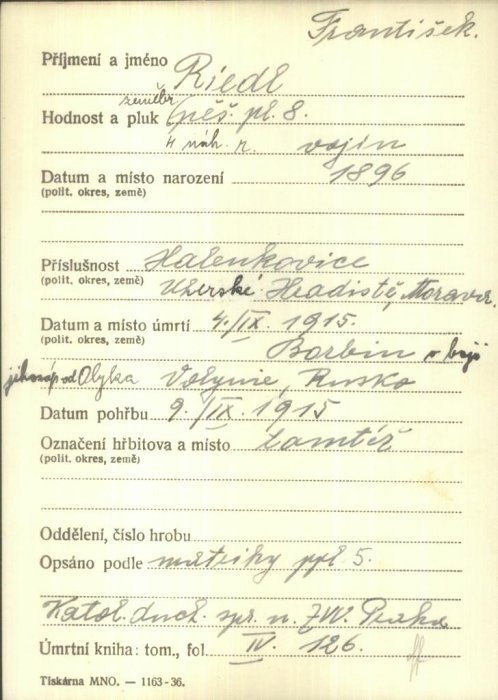 František.
Příjmení a jméno Riedl
zeměbr.
Hodnost a pluk pěš. pl. 8.
4 náh. r. vojín
Datum a místo narození 1896
(polit. okres, země)
Příslušnost Halenkovice
(polit. okres, země) Uherské Hradiště, Morava.
Datum a místo úmrtí 4./IX. 1915.
(polit. okres, země) Borbin v boji
jihozáp od Olyka Volynie, Rusko
Datum pohřbu 9./IX. 1915
Označení hřbitova a místo tamtéž
(polit. okres, země)
Oddělení, číslo hrobu
Opsáno podle matriky ppl. 5.
Katol. duch. spr. n. ZVV. Praha
Úmrtní kniha: tom., fol. IV. 126.
Tiskárna MNO. — 1163-36.